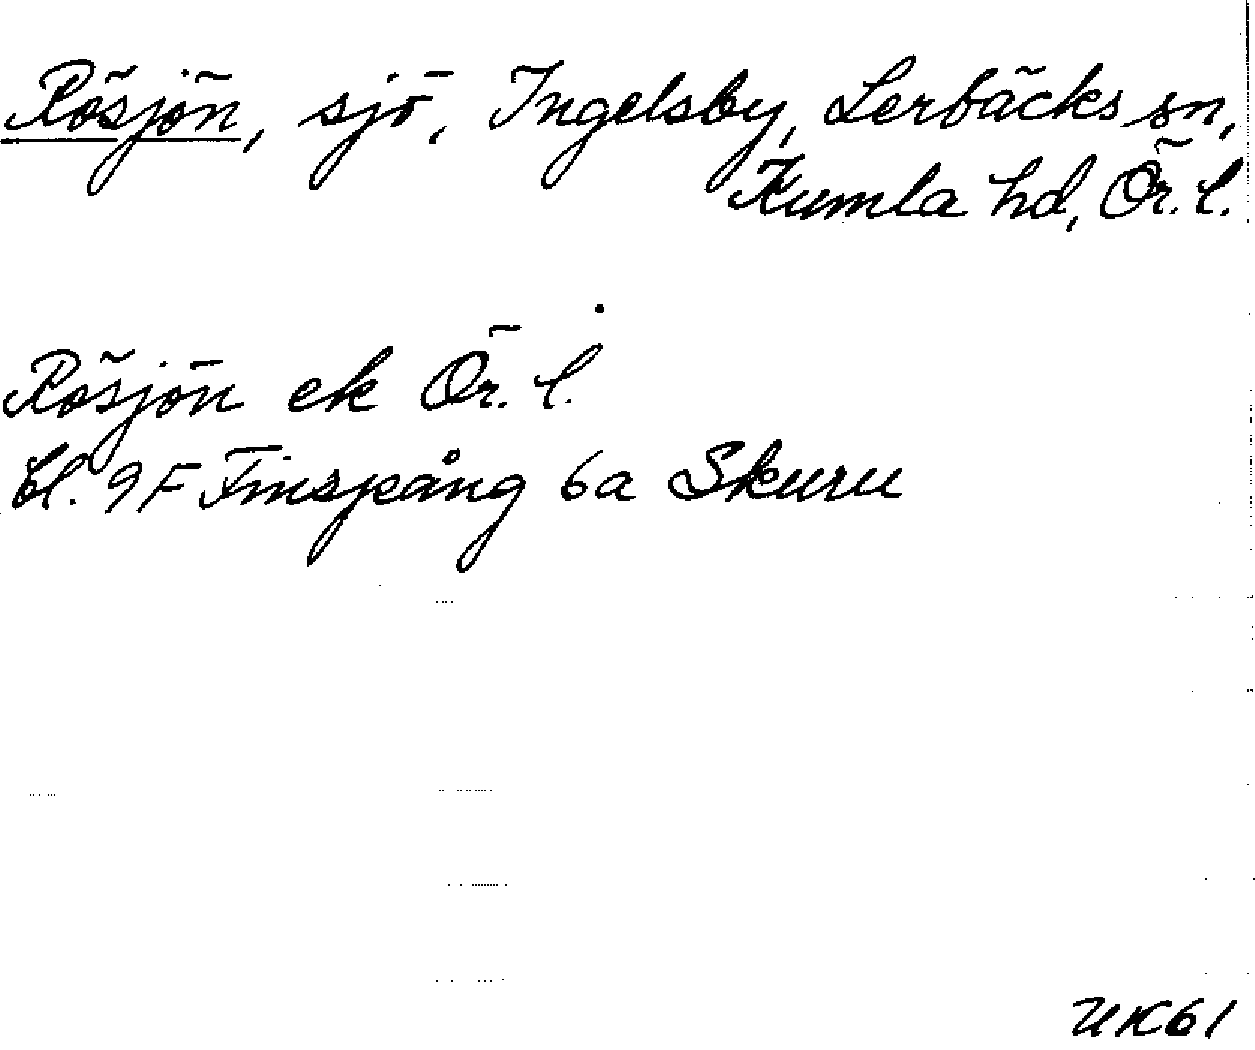 Rösjön, sjö, Ingelsby, Lerbäcks sn,
Kumla hd, Ör. l.
Rösjön ek Ör. l.
bl. 9F Finspång 6a Skuru
UK61